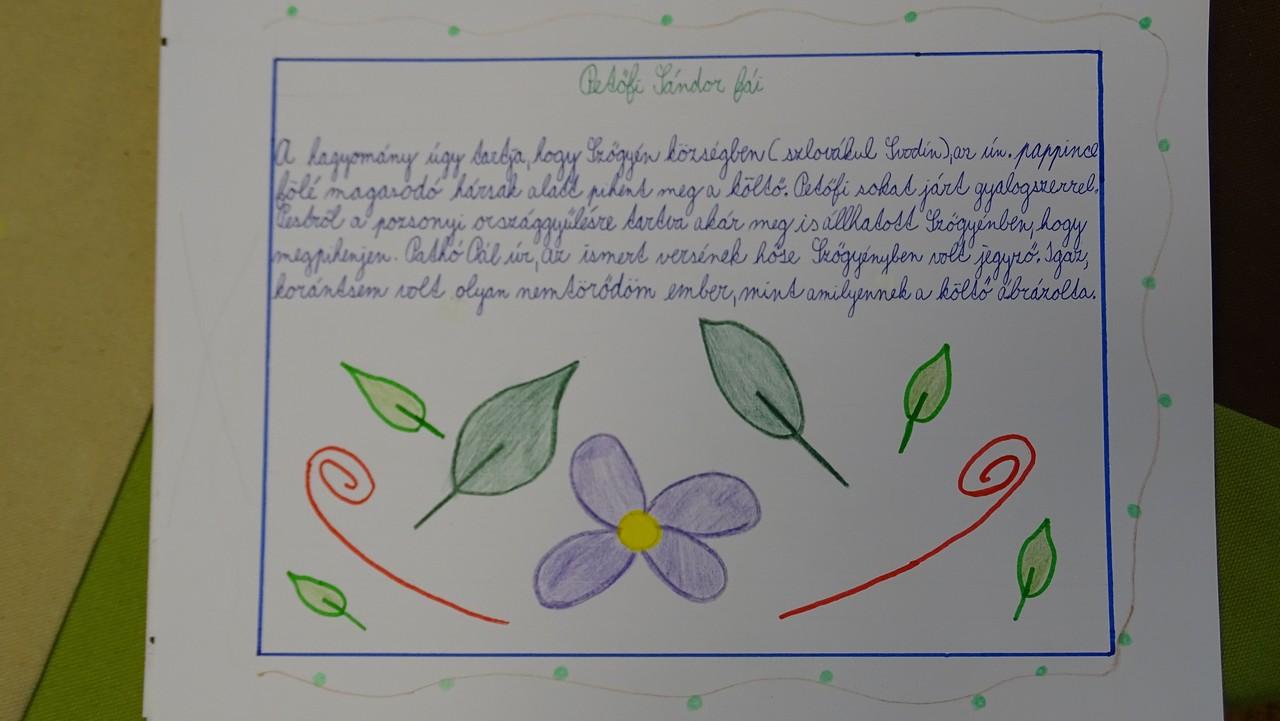 Petőfi Sándor fái
A hagyomány úgy tartja, hogy Szőgyén községben (szlovákul Svodín), az ún. pappince
fölé magasodó hársak alatt pihent meg a költő. Petőfi sokat járt gyalogszerrel.
Pestről a pozsonyi országgyűlésre tartva akár meg is állhatott Szőgyénben, hogy
megpihenjen. Pathó Pál úr, az ismert versének hőse Szőgyényben volt jegyző. Igaz,
korántsem volt olyan nemtörődöm ember, mint amilyennek a költő ábrázolta.